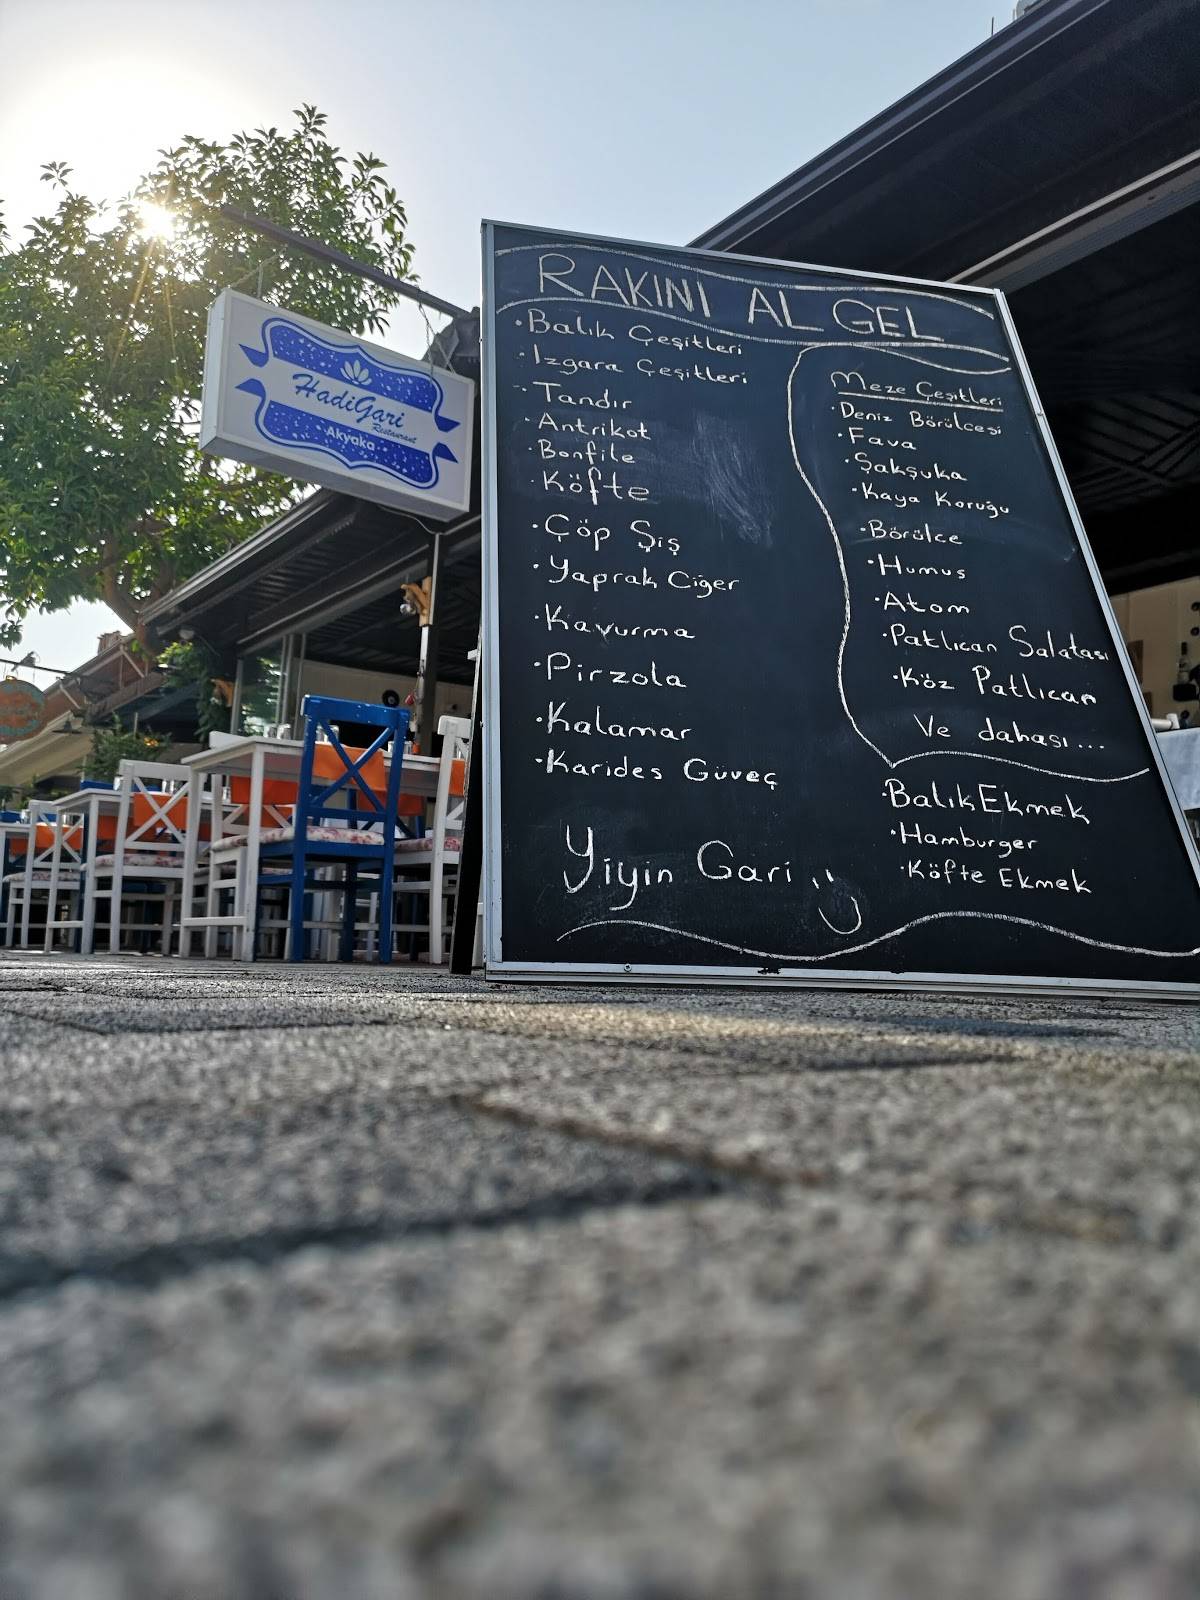 HadiGari
Restaurant
Akyaka
RAKINI AL GEL
·Balık Çeşitleri
·Izgara Çeşitleri
·Tandır
·Antrikot
·Bonfile
·Köfte
·Çöp Şiş
·Yaprak Ciğer
·Kavurma
·Pirzola
·Kalamar
·Karides Güveç
Yiyin Gari
Meze Çeşitleri
·Deniz Börülcesi
·Fava
·Şakşuka
·Kaya Koruğu
·Börülce
·Humus
·Atom
·Patlıcan Salatası
·Köz Patlıcan
Ve dahası...
·Balık Ekmek
·Hamburger
·Köfte Ekmek